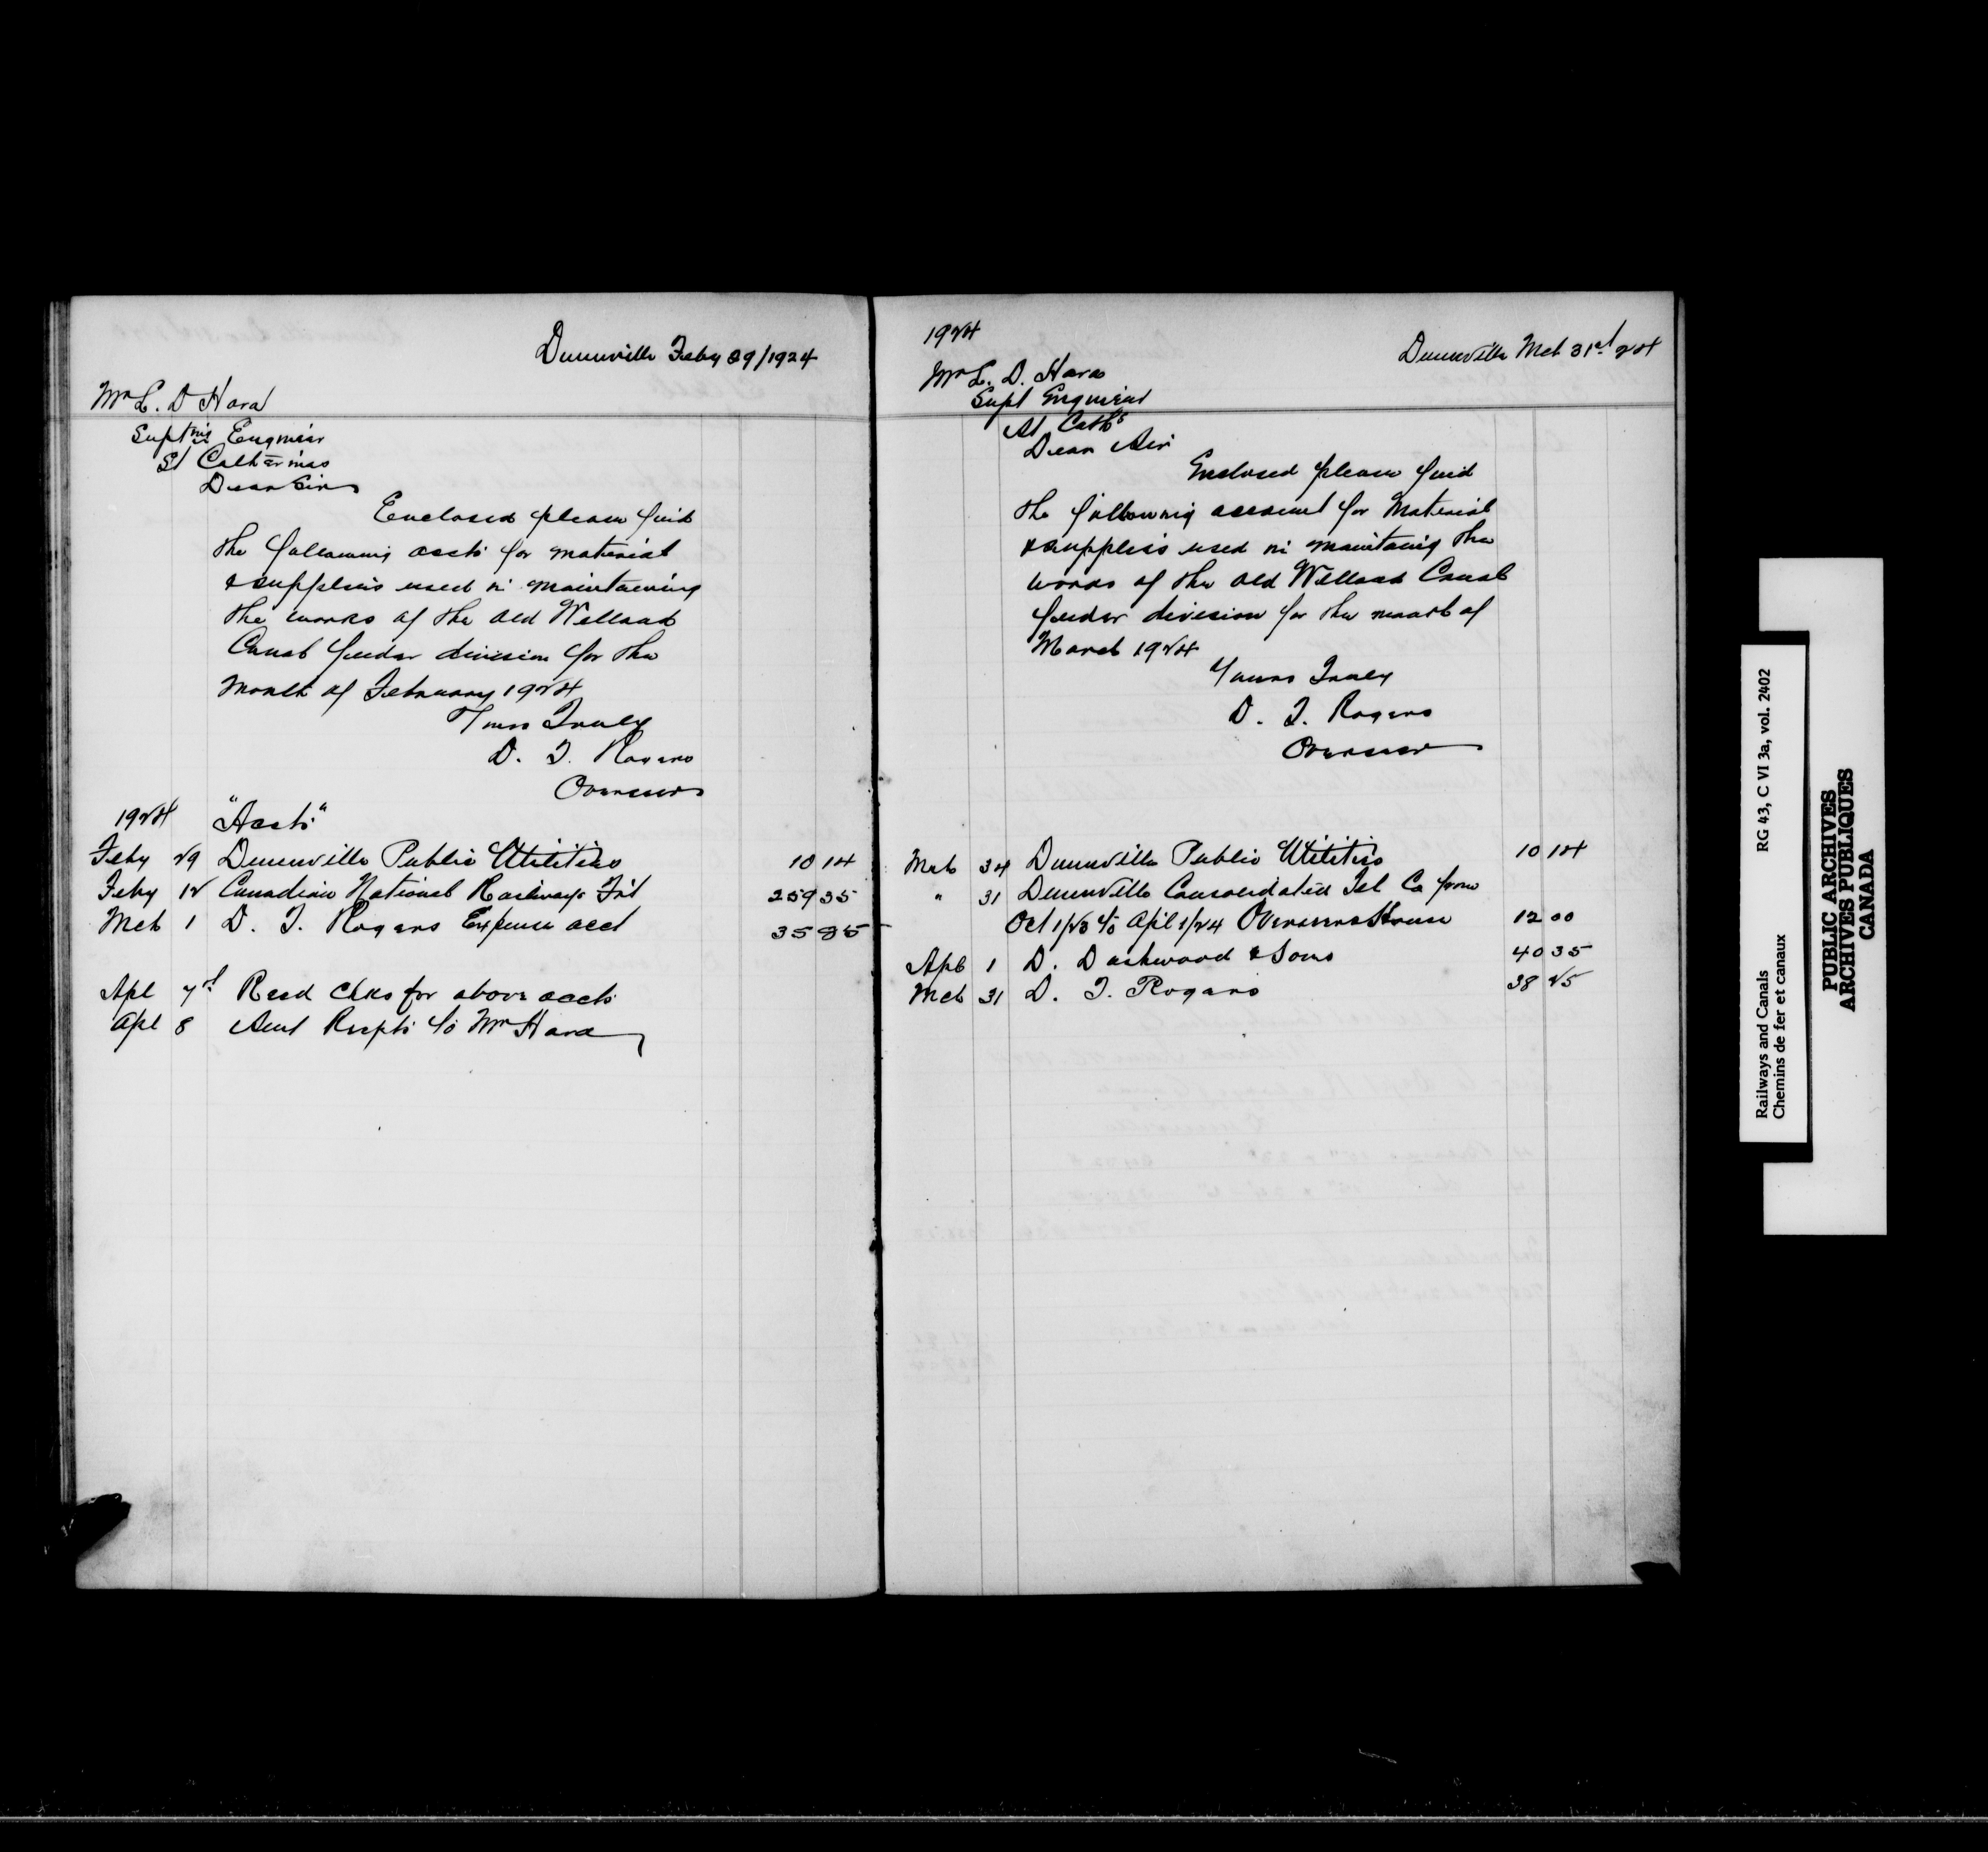 Dunnville Feby 29/1924
Mr L. D Hara
Supt'ing Engineer
St Catharines
Dear Sir
Enclosed please find
the following accts for material
& supplies used in maintaining
the works of the old Welland
Canal feeder division for the
Month of February 1924
Yours Truly
D. T. Rogers
Overseer
1924 "Accts"
Feby 29 Dunnville Public Utilities 10 14
Feby 12 Canadian National Railways Frt 259 35
Mch 1 D. T. Rogers Expense acct 35 85
Apl 7th Recd Chks for above accts
Apl 8 Sent Recpts to Mr Hara
1924
Dunnville Mch 31st 24
Mr L. D. Hara
Supt Engineer
St Cath's
Dear Sir
Enclosed please find
the following account for Material
& supplies used in maintaing the
works of the old Welland Canal
feeder division for the month of
March 1924
Yours Truly
D. T. Rogers
Overseer
Mch 24 Dunnville Public Utilities 10 14
" 31 Dunnville Consolidated Tel Co from
Oct 1/23 to Apl 1/24 Overseers House 12 00
Apl 1 D. Dashwood & Sons 40 35
Mch 31 D. T. Rogers 38 25
Railways and Canals
Chemins de fer et canaux
RG 43, C VI 3a, vol. 2402
PUBLIC ARCHIVES
ARCHIVES PUBLIQUES
CANADA